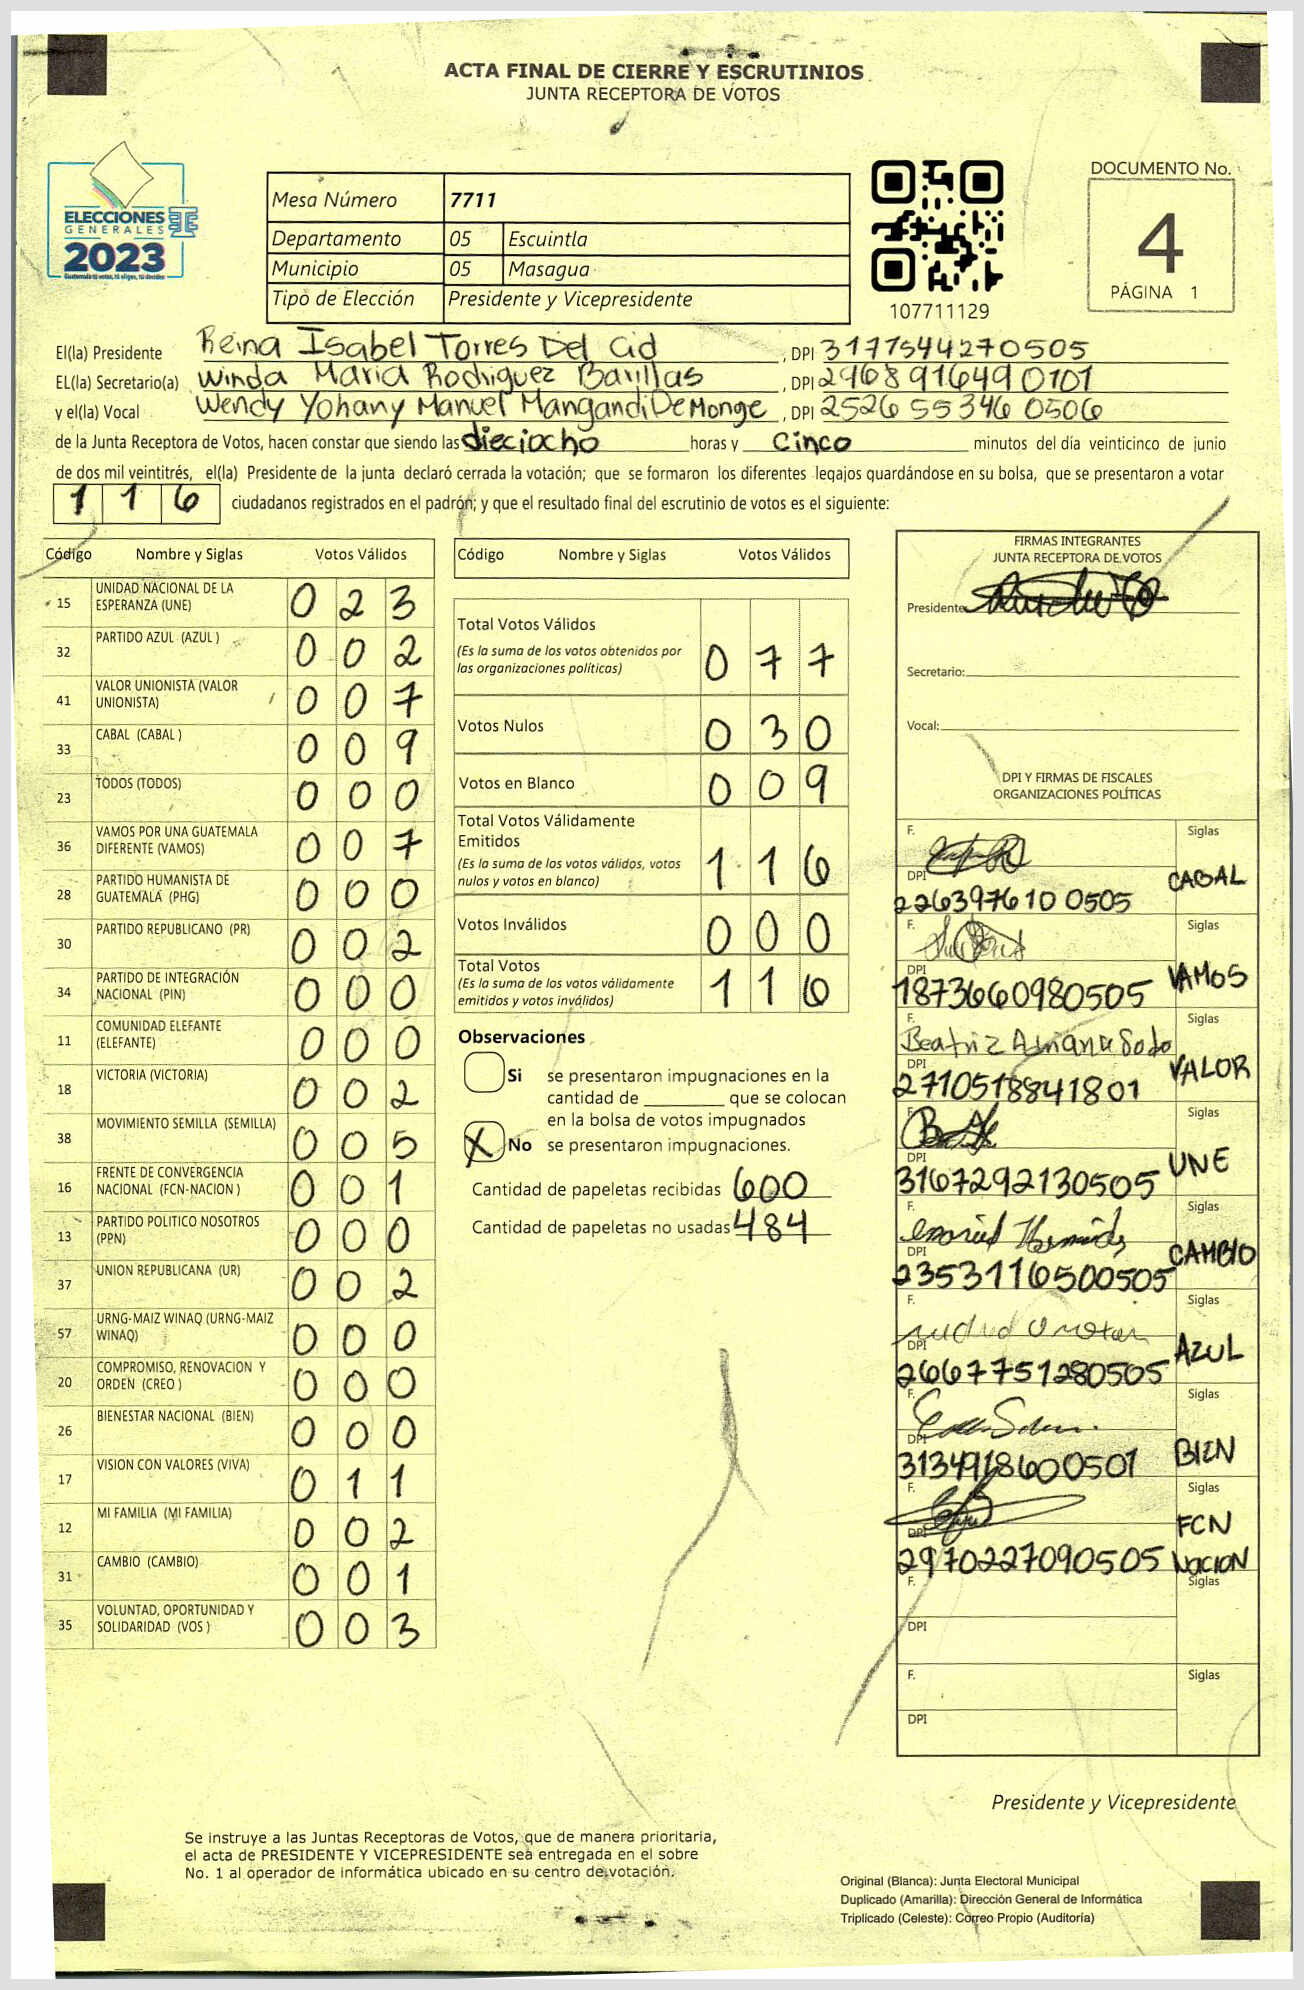 ACTA FINAL DE CIERRE Y ESCRUTINIOS
JUNTA RECEPTORA DE VOTOS
ELECCIONES
GENERALES
2023
Mesa Número 7711
Departamento 05 Escuintla
Municipio 05 Masagua
Tipo de Elección Presidente y Vicepresidente
107711129
DOCUMENTO No.
4
PÁGINA 1
El(la) Presidente Reina Isabel Torres Del Cid, DPI 3177544270505
EL(la) Secretario(a) Winda Maria Rodriguez Barillas, DPI 2968916490101
y el(la) Vocal Wendy Yohany Manuel Mangandi De Monge, DPI 2526553460506
de la Junta Receptora de Votos, hacen constar que siendo las dieciocho horas y cinco minutos del día veinticinco de junio
de dos mil veintitrés, el(la) Presidente de la junta declaró cerrada la votación; que se formaron los diferentes legajos guardándose en su bolsa, que se presentaron a votar
116 ciudadanos registrados en el padrón; y que el resultado final del escrutinio de votos es el siguiente:
Código Nombre y Siglas Votos Válidos
15 UNIDAD NACIONAL DE LA ESPERANZA (UNE) 023
32 PARTIDO AZUL (AZUL) 002
41 VALOR UNIONISTA (VALOR UNIONISTA) 007
33 CABAL (CABAL) 009
23 TODOS (TODOS) 000
36 VAMOS POR UNA GUATEMALA DIFERENTE (VAMOS) 007
28 PARTIDO HUMANISTA DE GUATEMALA (PHG) 000
30 PARTIDO REPUBLICANO (PR) 002
34 PARTIDO DE INTEGRACIÓN NACIONAL (PIN) 000
11 COMUNIDAD ELEFANTE (ELEFANTE) 000
18 VICTORIA (VICTORIA) 002
38 MOVIMIENTO SEMILLA (SEMILLA) 005
16 FRENTE DE CONVERGENCIA NACIONAL (FCN-NACION) 001
13 PARTIDO POLITICO NOSOTROS (PPN) 000
37 UNION REPUBLICANA (UR) 002
57 URNG-MAIZ WINAQ (URNG-MAIZ WINAQ) 000
20 COMPROMISO, RENOVACION Y ORDEN (CREO) 000
26 BIENESTAR NACIONAL (BIEN) 000
17 VISION CON VALORES (VIVA) 011
12 MI FAMILIA (MI FAMILIA) 002
31 CAMBIO (CAMBIO) 001
35 VOLUNTAD, OPORTUNIDAD Y SOLIDARIDAD (VOS) 003
Código Nombre y Siglas Votos Válidos
Total Votos Válidos
(Es la suma de los votos obtenidos por las organizaciones políticas) 077
Votos Nulos 030
Votos en Blanco 009
Total Votos Válidamente Emitidos
(Es la suma de los votos válidos, votos nulos y votos en blanco) 116
Votos Inválidos 000
Total Votos
(Es la suma de los votos válidamente emitidos y votos inválidos) 116
Observaciones
Si se presentaron impugnaciones en la
cantidad de ________ que se colocan
en la bolsa de votos impugnados
X No se presentaron impugnaciones.
Cantidad de papeletas recibidas 600
Cantidad de papeletas no usadas 484
FIRMAS INTEGRANTES
JUNTA RECEPTORA DE VOTOS
Presidente
Secretario:
Vocal:
DPI Y FIRMAS DE FISCALES
ORGANIZACIONES POLÍTICAS
F. Siglas
DPI 2263976100505 CABAL
F. Siglas
DPI 1873660980505 VAMOS
F. Beatriz Adriana Soto Siglas
DPI 2710518841801 VALOR
F. Siglas
DPI 3167292130505 UNE
F. Siglas
DPI 2353116500505 CAMBIO
F. Siglas
DPI 2667751280505 AZUL
F. Siglas
DPI 3134918600501 BIEN
F. Siglas
DPI 2970227090505 FCN NACION
F. Siglas
DPI
F. Siglas
DPI
Presidente y Vicepresidente
Se instruye a las Juntas Receptoras de Votos, que de manera prioritaria,
el acta de PRESIDENTE Y VICEPRESIDENTE sea entregada en el sobre
No. 1 al operador de informática ubicado en su centro de votación.
Original (Blanca): Junta Electoral Municipal
Duplicado (Amarilla): Dirección General de Informática
Triplicado (Celeste): Correo Propio (Auditoría)